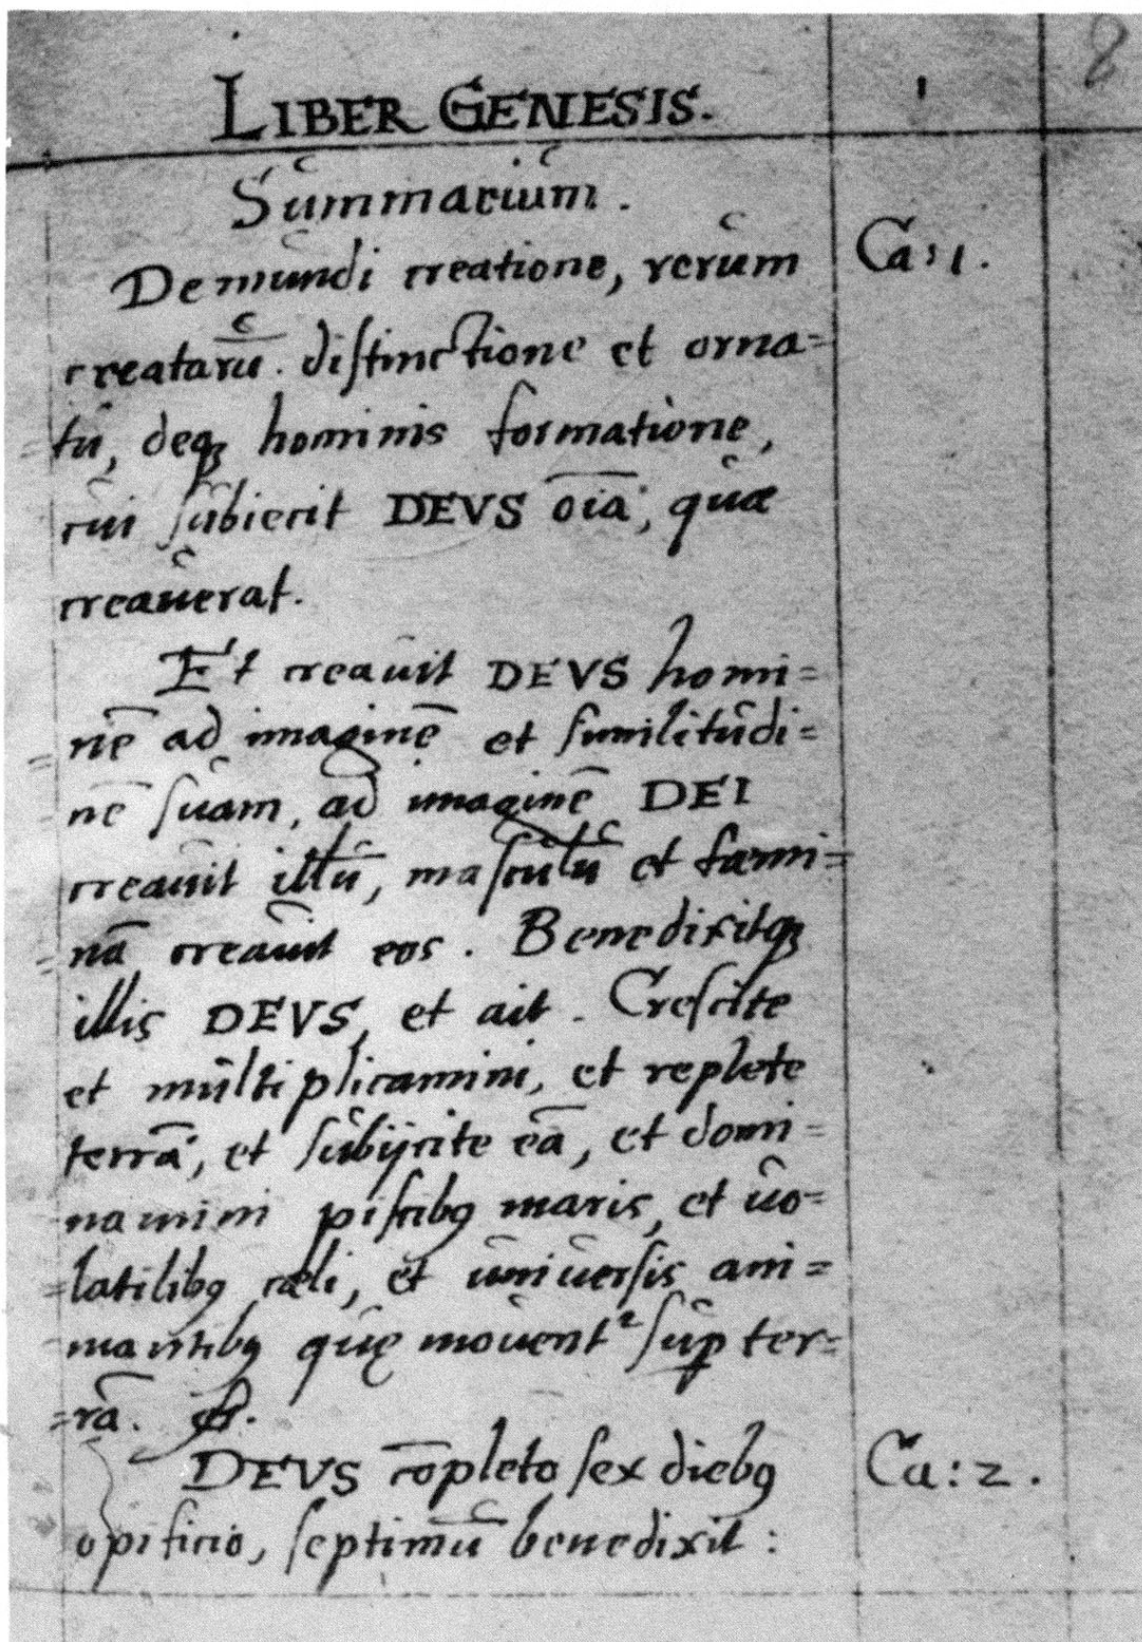 LIBER GENESIS. 1 8
Summarium.
De mundi creatione, rerum Ca: 1.
creatarū. distinctione et orna=
tu, deq₃ hominis formatione,
cui subiecit DEVS oīa, quæ
creauerat.
Et creauit DEVS homi=
nē ad imaginē et similitudi=
nē suam, ad imaginē DEI
creauit illū, masculū et fæmi=
nā creauit eos. Benedixitq₃
illis DEVS, et ait. Crescite
et multiplicamini, et replete
terrā, et subijcite eā, et domi=
namini piscibꝰ maris, et uo=
=latilibꝰ cæli, et uniuersis ani=
mantibꝰ quę mouent² suꝑ ter=
=rā. &.
DEVS cōpleto sex diebꝰ Ca: 2.
opificio, septimū benedixit: